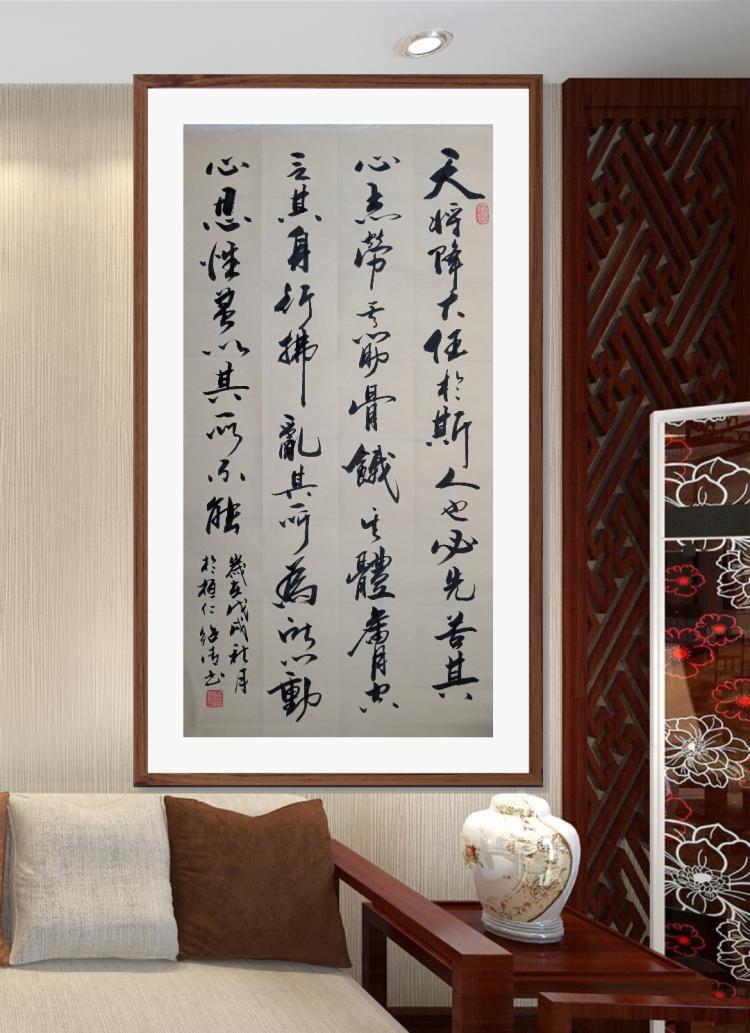 天将降大任於斯人也必先苦其
心志勞其筋骨餓其體膚空
乏其身行拂亂其所為所以動
心忍性曾益其所不能
歲在戊戌秋月
於栢仁紹清书